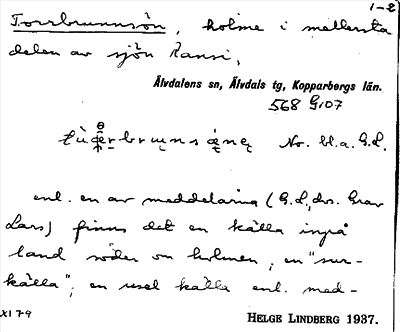 1-2
Torrbrunnsön, holme i mellersta
delen av sjön Ransi,
Älvdalens sn, Älvdals tg, Kopparbergs län.
568 G107
No. bl.a. G.L.
enl. en av meddelarna (G.L., dvs. Grav
Lars) finns det en källa inpå
land söder om holmen, en "sur-
källa"; en usel källa enl. med-
XI 79
HELGE LINDBERG 1937.